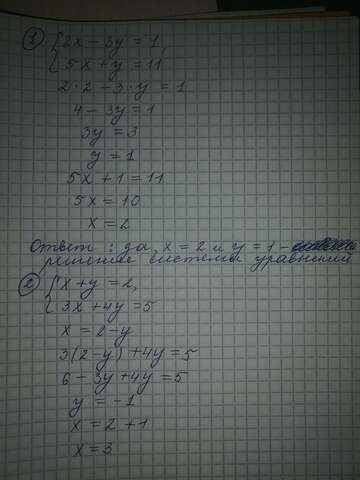 1. { 2x - 3y = 1,
5x + y = 11
2·2 - 3·y = 1
4 - 3y = 1
3y = 3
y = 1
5x + 1 = 11
5x = 10
x = 2
Ответ: да, x = 2 и y = 1 -
решение системы уравнений
2 { x + y = 2,
3x + 4y = 5
x = 2 - y
3(2 - y) + 4y = 5
6 - 3y + 4y = 5
y = -1
x = 2 + 1
x = 3